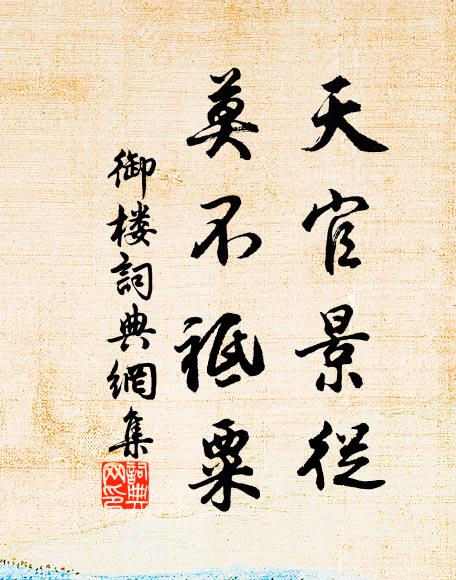 天官景從
莫不祗粟
御楼詞典網集
詞典
网印